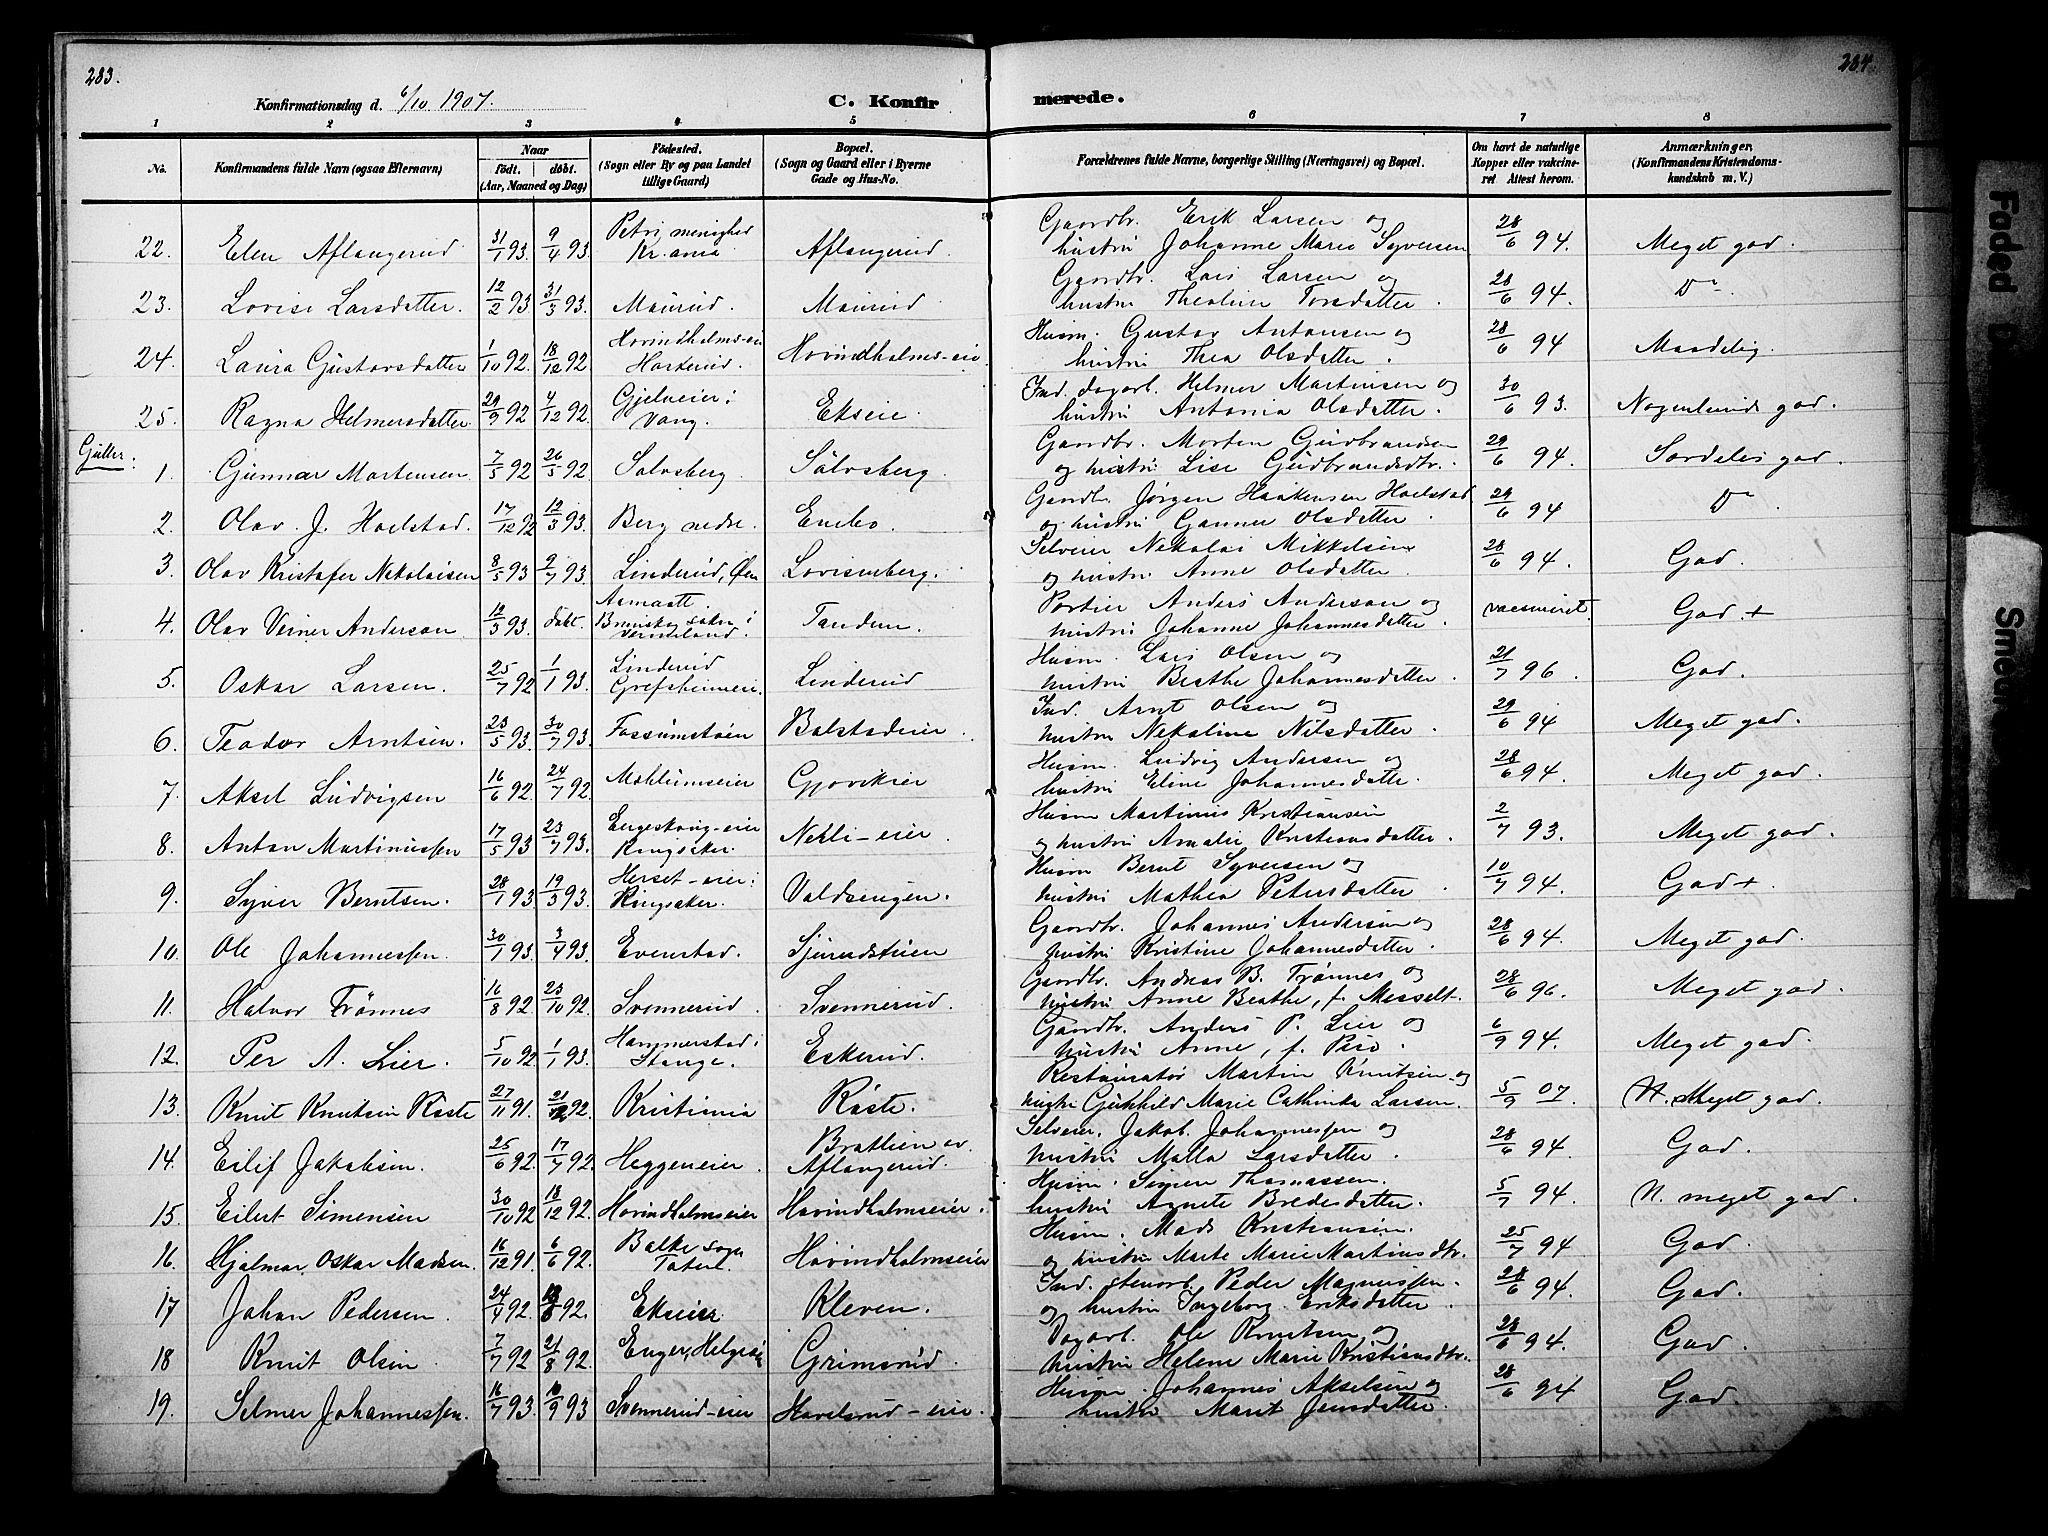 283.
284.
Konfirmationsdag d. 6/10 1907.
C. Konfirmerede.
1 2 3 4 5 6 7 8
No. Konfirmandens fulde Navn (ogsaa Efternavn) Naar født. døbt. (Aar, Maaned og Dag) Fødested. (Sogn eller By og paa Landet tillige Gaard) Bopæl. (Sogn og Gaard eller i Byerne Gade og Hus-No. Forældrenes fulde Navne, borgerlige Stilling (Næringsvei) og Bopæl. Om havt de naturlige Kopper eller vakcineret. Attest herom. Anmærkninger. (Konfirmandens Kristendomskundskab m. V.)
22. Elen Aflangerud 31/1 93. 9/4 93. Petri menighed Kr.ania Aflangerud. Gaardbr. Erik Larsen og hustru Johanne Marie Syversen 28/6 94. Meget god.
23. Lovise Larsdatter. 12/2 93. 31/3 93. Maurud. Maurud Gaardbr. Lars Larsen og hustru Theoline Torsdatter. 28/6 94. Do.
24. Laura Gustavsdatter 1/10 92. 18/12 92. Hovindholms-eie Horkerud. Hovindholms-eie Husm. Gustav Antonsen og hustru Thea Olsdatter. 28/6 94 Maadelig.
25. Ragna Helmersdatter. 29/9 92 4/12 92. Gjelveier i Vang. Ekseie. Ind. dagarb. Helmer Martinsen og hustru Antonia Olsdatter. 30/6 93. Nogenlunde god.
Gutter:
1. Gunnar Mortensen. 7/5 92 26/5 92. Solvsberg Sölvsberg. Gaardbr. Morten Gudbrandsen og hustru Lise Gudbrandsdtr. 29/6 94. Særdeles god.
2. Olav J. Hoelstad. 17/12 92 12/3 93. Berg nedre. Enebo. Gaardbr. Jørgen Haakensen Hoelstad og hustru Gunner Olsdatter. 29/6 94 Do
3. Olav Kristofer Nikolaisen 8/5 93 2/7 93. Linderud, Øen Lovisenberg. Selveier Nikolai Mikkelsen og hustru Anne Olsdatter. 28/6 94. God.
4. Olav Verner Anderson. 19/3 93. døbt. Aamaatt. Brunskog sokn i Vermeland. Tandem. Portier Anders Anderson og hustru Johanne Johannesdatter. vaccineret. God. +
5. Oskar Larsen. 25/7 92 1/1 93. Linderud Grefsheimeie. Linderud Husm. Lars Olsen og hustru Beathe Johannesdatter. 21/7 96. God.
6. Teodor Arntsen. 23/5 93 30/7 93. Fossumstøen Bolstadeier. Ind. Arnt Olsen og hustru Nekoline Nilsdatter. 29/6 94 Meget god.
7. Aksel Ludvigsen 16/6 92. 24/7 92. Mohlumseier Gjøvikeier Husm. Ludvig Andersen og hustru Eline Johannesdatter. 28/6 94. Meget god.
8. Anton Martinussen 17/5 93 23/7 93. Engeskaug-eier Ringsaker. Nerli-eier. Husm Martinus Kristiansen og hustru Amalie Kristiansdatter. 2/7 93. Meget god.
9. Syver Berntsen. 28/1 93. 19/3 93. Herset-eier i Ringsaker. Voldsengen. Husm Bernt Syversen og hustru Mathea Petersdatter. 10/7 94. God +.
10. Ole Johannessen. 30/1 93. 3/4 93. Evenstad. Sjurudstuen Gaardbr. Johannes Andersen og hustru Kristine Johannesdatter. 28/6 94. Meget god.
11. Halvor Trönnes 16/8 92. 23/10 92. Svennerud. Svennerud. Gaardbr. Andreas B. Trönnes og hustru Anne Beathe, f. Messelt. 28/6 96. Meget god.
12. Per A. Lier. 5/10 92. 1/1 93. Hammerstad i Stange. Eskerud. Gaardbr. Anders P. Lier og hustru Anne, f. Piro. 6/9 94. Meget god.
13. Knut Knutsen Röste 27/11 91. 21/12 92. Kristiania Röste. Restauratør Martin Knutsen og hustru Gunhild Marie Cathinka Larsen. 5/9 07. N. Meget god.
14. Eilif Jakobsen. 25/6 92. 17/7 92. Heggeneier. Bratlien ev. Aflangerud. Selveier. Jakob Johannessen og hustru Malla Larsdatter. 28/6 94. God.
15. Eilert Simensen 30/10 92 18/12 92. Hovindholmseier Hovindholmseier. Husm. Simen Thomassen. hustru Agnete Bredesdatter. 5/7 94. N. meget god.
16. Hjalmar Oskar Madsen. 16/12 91. 6/6 92. Balke sogn Toten. Hovindholmseier Husm. Mads Kristiansen. og hustru Marte Marie Martinsdtr. 25/7 94 God.
17 Johan Pedersen. 24/4 92. 92. Ekseier Kleven. Ind. stenarb. Peder Magnussen. og hustru Ingeborg Eriksdatter. 28/6 94. God.
18 Knut Olsen 7/7 92 21/8 92. Enger, Helgøen Grimsrud. Dagarb. Ole Knutsen og hustru Helene Marie Kristiansdtr. 28/6 94. God.
19. Selmer Johannessen. 16/7 93. 10/9 93 Svennerud-eier Hovelsrud-eie. Husm. Johannes Akselsen og hustru Marit Jensdatter. 28/6 94 God.
Faded